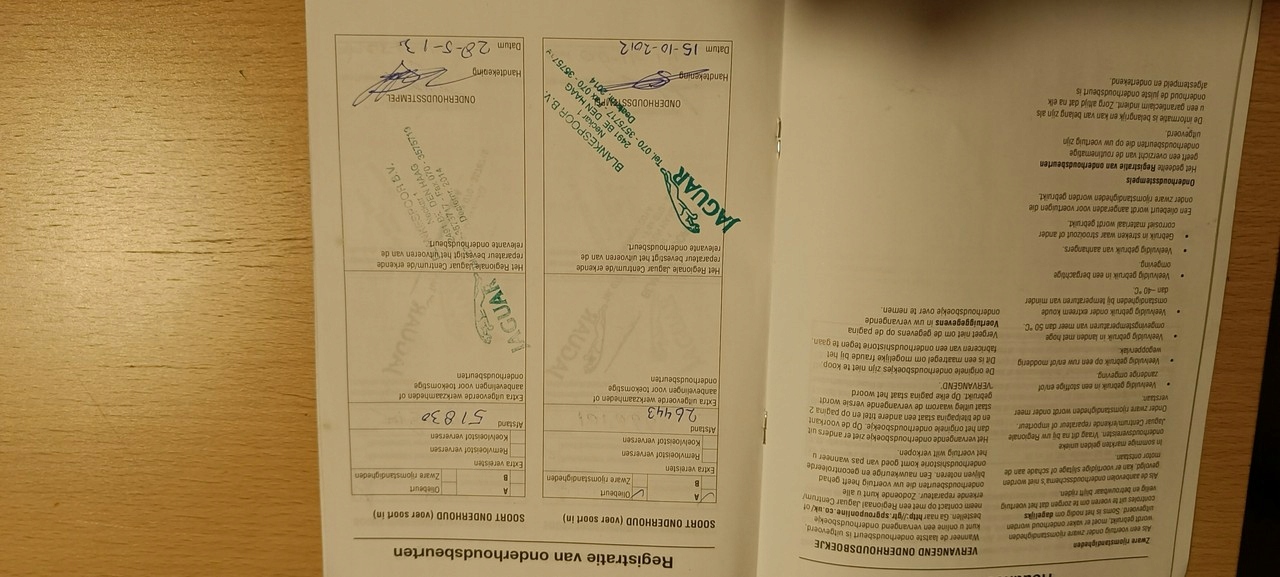 Zware rijomstandigheden
Als een voertuig onder zware rijomstandigheden
wordt gebruikt, moet er vaker onderhoud worden
uitgevoerd. Soms is het nodig om dagelijks
controles uit te voeren om te zorgen dat het voertuig
veilig en betrouwbaar blijft rijden.
Als de aanbevolen onderhoudsschema's niet worden
gevolgd, kan er voortijdige slijtage of schade aan de
motor ontstaan.
In sommige markten gelden unieke
onderhoudsvereisten. Vraag dit na bij uw Regionale
Jaguar Centrum/erkende reparateur of importeur.
Onder zware rijomstandigheden wordt onder meer
verstaan:
• Veelvuldig gebruik in een stoffige en/of
zanderige omgeving
• Veelvuldig gebruik op een ruw en/of modderig
wegoppervlak
• Veelvuldig gebruik in landen met hoge
omgevingstemperaturen van meer dan 50 °C
• Veelvuldig gebruik onder extreem koude
omstandigheden bij temperaturen van minder
dan –40 °C
• Veelvuldig gebruik in een bergachtige
omgeving
• Veelvuldig gebruik van aanhangers.
• Gebruik in streken waar strooizout of ander
corrosief materiaal wordt gebruikt.
Een oliebeurt wordt aangeraden voor voertuigen die
onder zware rijomstandigheden worden gebruikt.
Onderhoudsstempels
Het gedeelte Registratie van onderhoudsbeurten
geeft een overzicht van de routinematige
onderhoudsbeurten die op uw voertuig zijn
uitgevoerd.
De informatie is belangrijk en kan van belang zijn als
u een garantieclaim indient. Zorg altijd dat na elk
onderhoud de juiste onderhoudsbeurt is
afgestempeld en ondertekend.
VERVANGEND ONDERHOUDSBOEKJE
Wanneer de laatste onderhoudsbeurt is uitgevoerd,
kunt u online een vervangend onderhoudsboekje
bestellen. Ga naar http://jglr.sgrouponline.co.uk/ of
neem contact op met een Regionaal Jaguar Centrum/
erkende reparateur. Zodoende kunt u alle
onderhoudsbeurten die uw voertuig heeft gehad
blijven noteren. Een nauwkeurige en gecontroleerde
onderhoudshistorie komt goed van pas wanneer u
het voertuig wilt verkopen.
Het vervangende onderhoudsboekje ziet er anders uit
dan het originele onderhoudsboekje. Op de voorkant
en de titelpagina staat een andere titel en op pagina 2
staat uitleg waarom de vervangende versie wordt
gebruikt. Op elke pagina staat het woord
'VERVANGEND'.
De originele onderhoudsboekjes zijn niet te koop.
Dit is een maatregel om mogelijke fraude bij het
fabriceren van een onderhoudshistorie tegen te gaan
Vergeet niet om de gegevens op de pagina
Voertuiggegevens in uw vervangende
onderhoudsboekje over te nemen.
Registratie van onderhoudsbeurten
SOORT ONDERHOUD (voer soort in)
A Oliebeurt
B Zware rijomstandigheden
Extra vereisten
Remvloeistof verversen
Koelvloeistof verversen
Afstand 26443
Extra uitgevoerde werkzaamheden of
aanbevelingen voor toekomstige
onderhoudsbeurten
Het Regionale Jaguar Centrum/de erkende
reparateur bevestigt het uitvoeren van de
relevante onderhoudsbeurt.
JAGUAR
BLANKESPOOR B.V.
Neckar 1
2491 BE DEN HAAG
Tel. 070 - 3575717 - Fax 070 - 3575719
Dealernr. 2014
ONDERHOUDSSTEMPEL
Handtekening
Datum 15-10-2012
SOORT ONDERHOUD (voer soort in)
A Oliebeurt
B Zware rijomstandigheden
Extra vereisten
Remvloeistof verversen
Koelvloeistof verversen
Afstand 51830
Extra uitgevoerde werkzaamheden of
aanbevelingen voor toekomstige
onderhoudsbeurten
JAGUAR
Het Regionale Jaguar Centrum/de erkende
reparateur bevestigt het uitvoeren van de
relevante onderhoudsbeurt.
ONDERHOUDSSTEMPEL
Handtekening
Datum 28-5-13